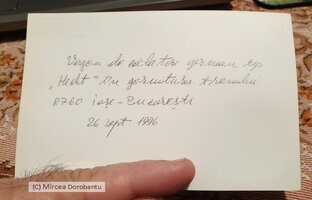 Vagon de călători german tip
„Hecht" în garnitura trenului
R760 Iași - București
26 sept 1996
(C) Mircea Dorobantu